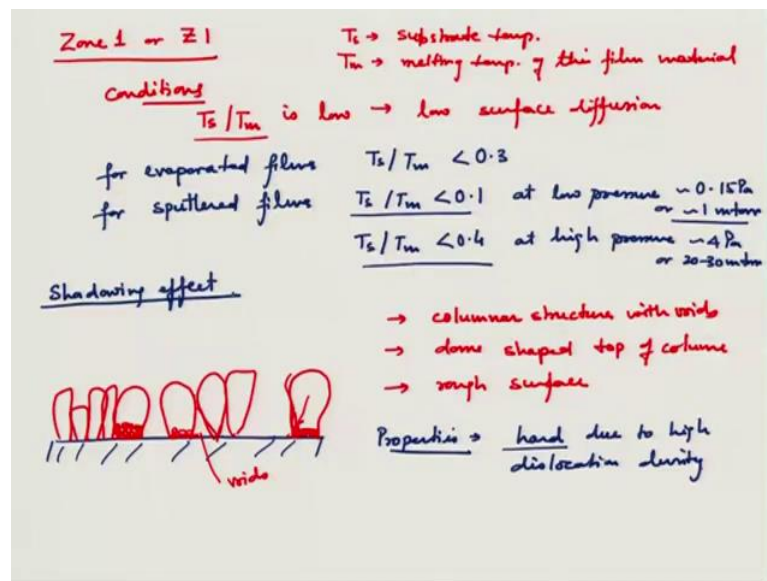 Zone 1 or Z1
Ts → substrate temp.
Tm → melting temp. of thin film material
Conditions
Ts/Tm is low → low surface diffusion
for evaporated films Ts/Tm < 0.3
for sputtered films Ts/Tm < 0.1 at low pressure ~0.15Pa
or ~1 mtorr
Ts/Tm < 0.4 at high pressure ~4 Pa
or 20-30 mtorr
Shadowing effect.
→ columnar structure with voids
→ dome shaped top of column
→ rough surface
Properties → hard due to high
dislocation density
voids